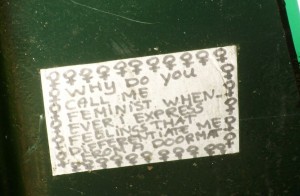 WHY DO you
CALL ME
FEMINIST WHEN...
EVER I EXPRESS
FEELINGS THAT
DIFFERENTIATE ME
FROM A DOORMAT